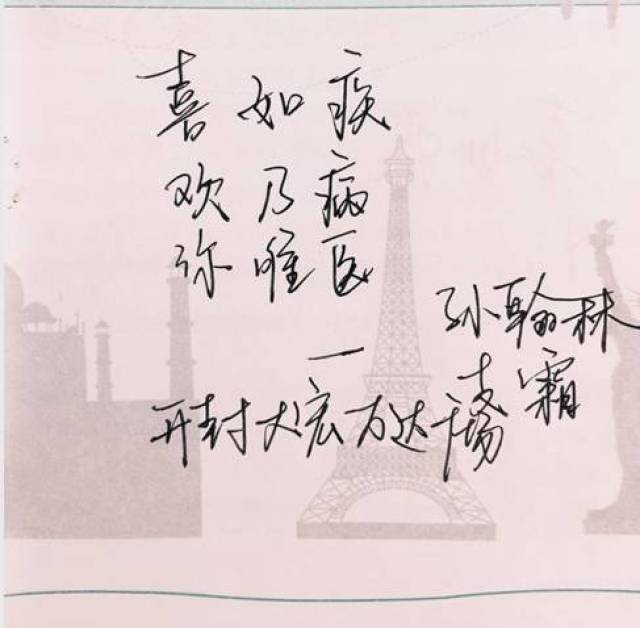 喜如疾
欢乃病
你唯医
一
孙翰林
霜
开封大宏万达